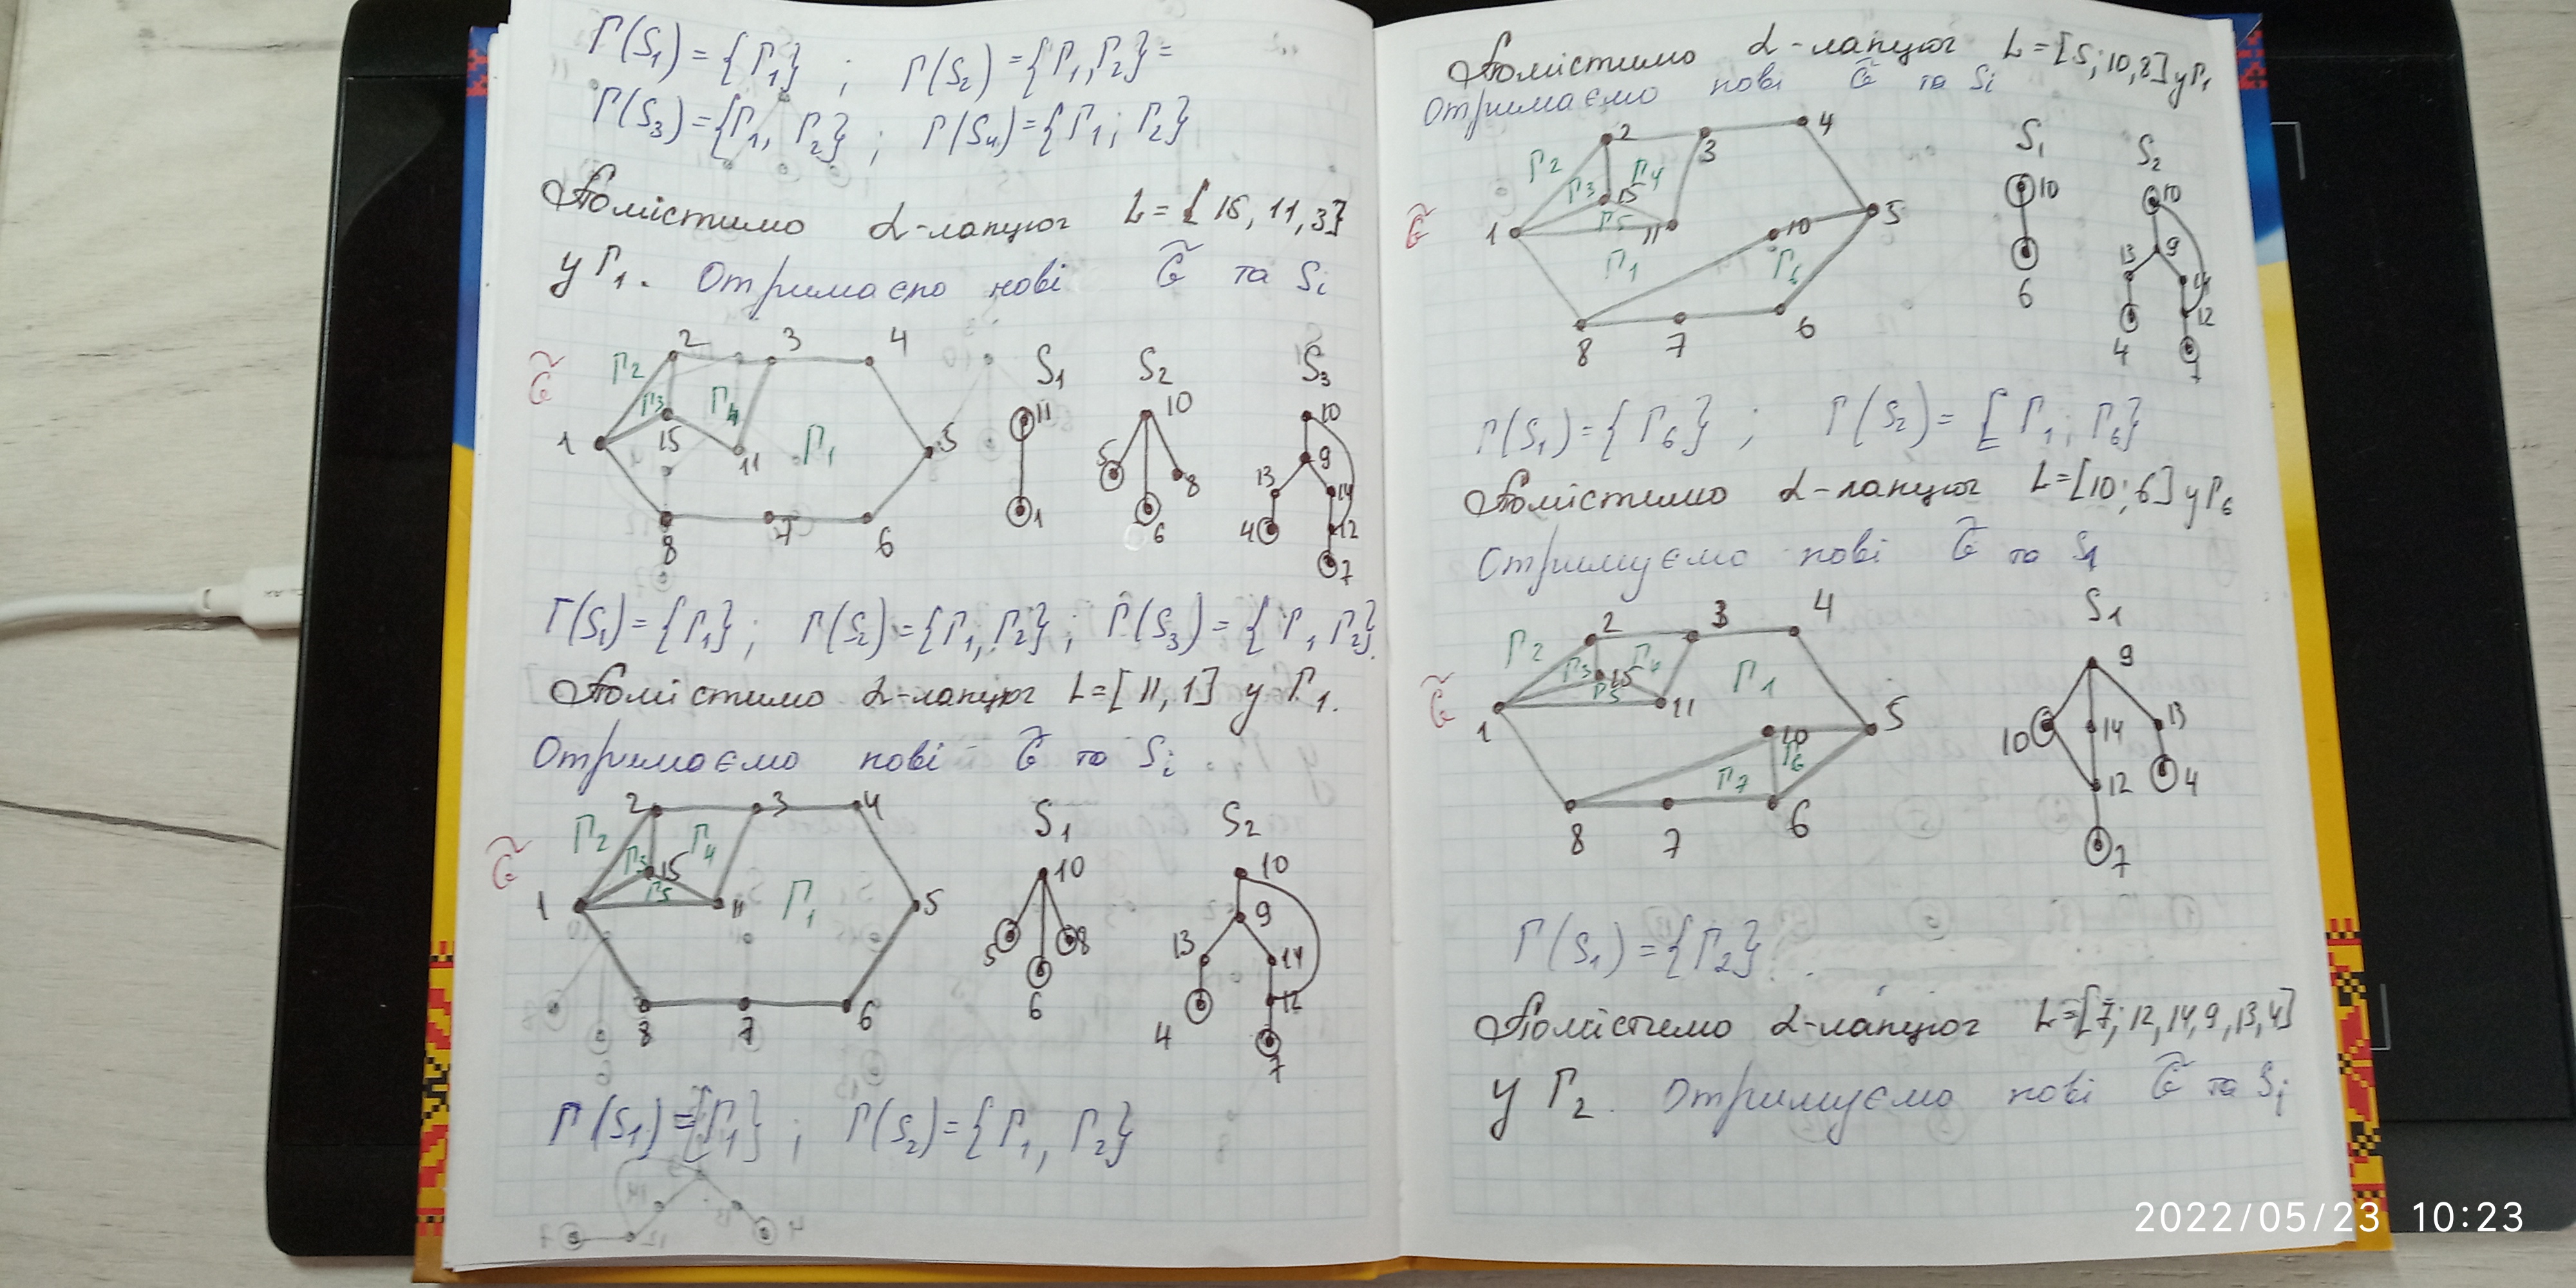 Γ(S₁) = {Γ₁} ; Γ(S₂) = {Γ₁, Γ₂} =
Γ(S₃) = {Γ₁, Γ₂} ; Γ(S₄) = {Γ₁; Γ₂}
Помістимо α-ланцюг L = [15, 11, 3]
у Γ₁. Отримаємо нові G̃ та Sᵢ
G̃
1 2 3 4 5 6 7 8 15 11
Γ₂ Γ₃ Γ₄ Γ₁
S₁ 11 1
S₂ 10 5 6 8
S₃ 10 9 13 14 4 12 7
Γ(S₁) = {Γ₁} ; Γ(S₂) = {Γ₁, Γ₂} ; Γ(S₃) = {Γ₁, Γ₂}.
Помістимо α-ланцюг L = [11, 1] у Γ₁.
Отримаємо нові G̃ та Sᵢ
G̃
1 2 3 4 5 6 7 8 15 11
Γ₂ Γ₃ Γ₄ Γ₅ Γ₁
S₁ 10 5 6 8
S₂ 10 9 13 14 4 12 7
Γ(S₁) = {Γ₁} ; Γ(S₂) = {Γ₁, Γ₂}
Помістимо α-ланцюг L = [5; 10, 8] у Γ₁
Отримаємо нові G̃ та Sᵢ
G̃
1 2 3 4 5 6 7 8 15 11 10
Γ₂ Γ₃ Γ₄ Γ₅ Γ₁ Γ₆
S₁ 10 6
S₂ 10 9 13 14 4 12 7
Γ(S₁) = {Γ₆} ; Γ(S₂) = {Γ₁; Γ₆}
Помістимо α-ланцюг L = [10; 6] у Γ₆
Отримуємо нові G̃ та S₁
G̃
1 2 3 4 5 6 7 8 15 11 10
Γ₂ Γ₃ Γ₄ Γ₅ Γ₁ Γ₆ Γ₇
S₁ 9 10 14 13 12 4 7
Γ(S₁) = {Γ₂}
Помістимо α-ланцюг L = [7; 12, 14, 9, 13, 4]
у Γ₂. Отримуємо нові G̃ та Sᵢ
2022/05/23 10:23